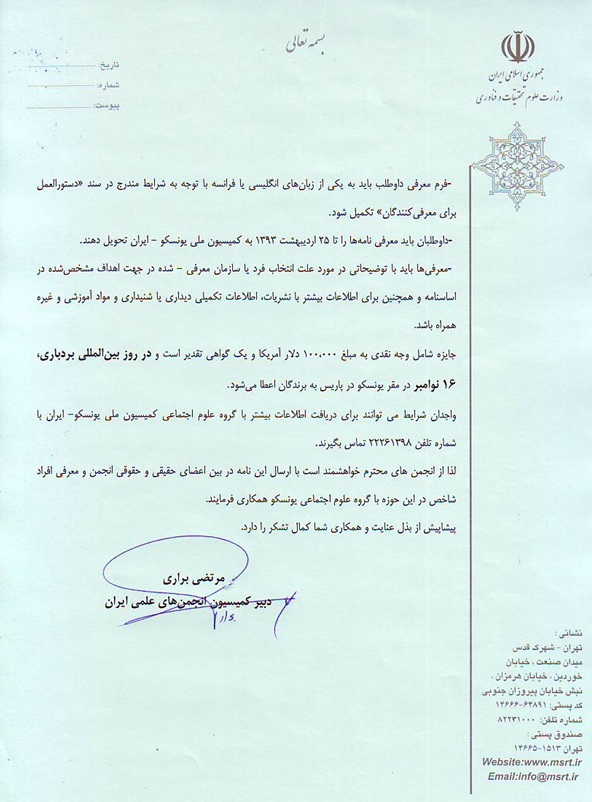 بسمه تعالی
جمهوری اسلامی ایران
وزارت علوم تحقیقات و فناوری
تاریخ:
شماره:
پیوست:
-فرم معرفی داوطلب باید به یکی از زبان‌های انگلیسی یا فرانسه با توجه به شرایط مندرج در سند «دستورالعمل
برای معرفی‌کنندگان» تکمیل شود.
-داوطلبان باید معرفی نامه‌ها را تا ۲۵ اردیبهشت ۱۳۹۳ به کمیسیون ملی یونسکو – ایران تحویل دهند.
-معرفی‌ها باید با توضیحاتی در مورد علت انتخاب فرد یا سازمان معرفی – شده در جهت اهداف مشخص‌شده در
اساسنامه و همچنین برای اطلاعات بیشتر با نشریات، اطلاعات تکمیلی دیداری یا شنیداری و مواد آموزشی و غیره
همراه باشد.
جایزه شامل وجه نقدی به مبلغ ۱۰۰,۰۰۰ دلار آمریکا و یک گواهی تقدیر است و در روز بین‌المللی بردباری،
۱۶ نوامبر در مقر یونسکو در پاریس به برندگان اعطا می‌شود.
واجدان شرایط می توانند برای دریافت اطلاعات بیشتر با گروه علوم اجتماعی کمیسیون ملی یونسکو- ایران با
شماره تلفن ۲۲۲۶۱۳۹۸ تماس بگیرند.
لذا از انجمن های محترم خواهشمند است با ارسال این نامه در بین اعضای حقیقی و حقوقی انجمن و معرفی افراد
شاخص در این حوزه با گروه علوم اجتماعی یونسکو همکاری فرمایند.
پیشاپیش از بذل عنایت و همکاری شما کمال تشکر را دارد.
مرتضی براری
دبیر کمیسیون انجمن‌های علمی ایران
نشانی :
تهران - شهرک قدس
میدان صنعت ، خیابان
خوردین ، خیابان هرمزان ،
نبش خیابان پیروزان جنوبی
کد پستی: ۶۳۸۹۱-۱۴۶۶۶
شماره تلفن: ۸۲۲۳۱۰۰۰
صندوق پستی :
تهران ۱۵۱۳-۱۴۶۶۵
Website:www.msrt.ir
Email:info@msrt.ir